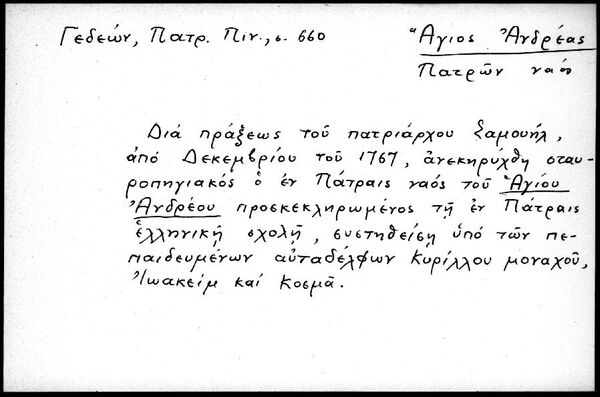 Γεδεών, Πατρ. Πιν., σ. 660
Ἅγιος Ἀνδρέας
Πατρῶν ναός
Διά πράξεως τοῦ πατριάρχου Σαμουήλ,
ἀπό Δεκεμβρίου τοῦ 1767, ἀνεκηρύχθη σταυ-
ροπηγιακός ὁ ἐν Πάτραις ναός τοῦ Ἁγίου
Ἀνδρέου προσκεκληρωμένος τῇ ἐν Πάτραις
ἑλληνικῇ σχολῇ, συστηθείσῃ ὑπό τῶν πε-
παιδευμένων αὐταδέλφων Κυρίλλου μοναχοῦ,
Ἰωακείμ καί Κοσμᾶ.